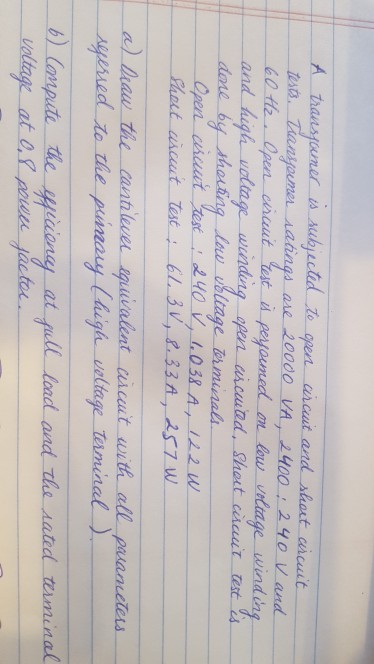 A transformer is subjected to open circuit and short circuit
tests. Transformer ratings are 20000 VA, 2400:240 V and
60 Hz. Open circuit test is performed on low voltage winding
and high voltage winding open circuited. Short circuit test is
done by shorting low voltage terminals.
Open circuit test : 240 V, 1.038 A, 122 W
Short circuit test : 61.3 V, 8.33 A, 257 W
a) Draw the cantilever equivalent circuit with all parameters
referred to the primary (high voltage terminal).
b) Compute the efficiency at full load and the rated terminal
voltage at 0.8 power factor.